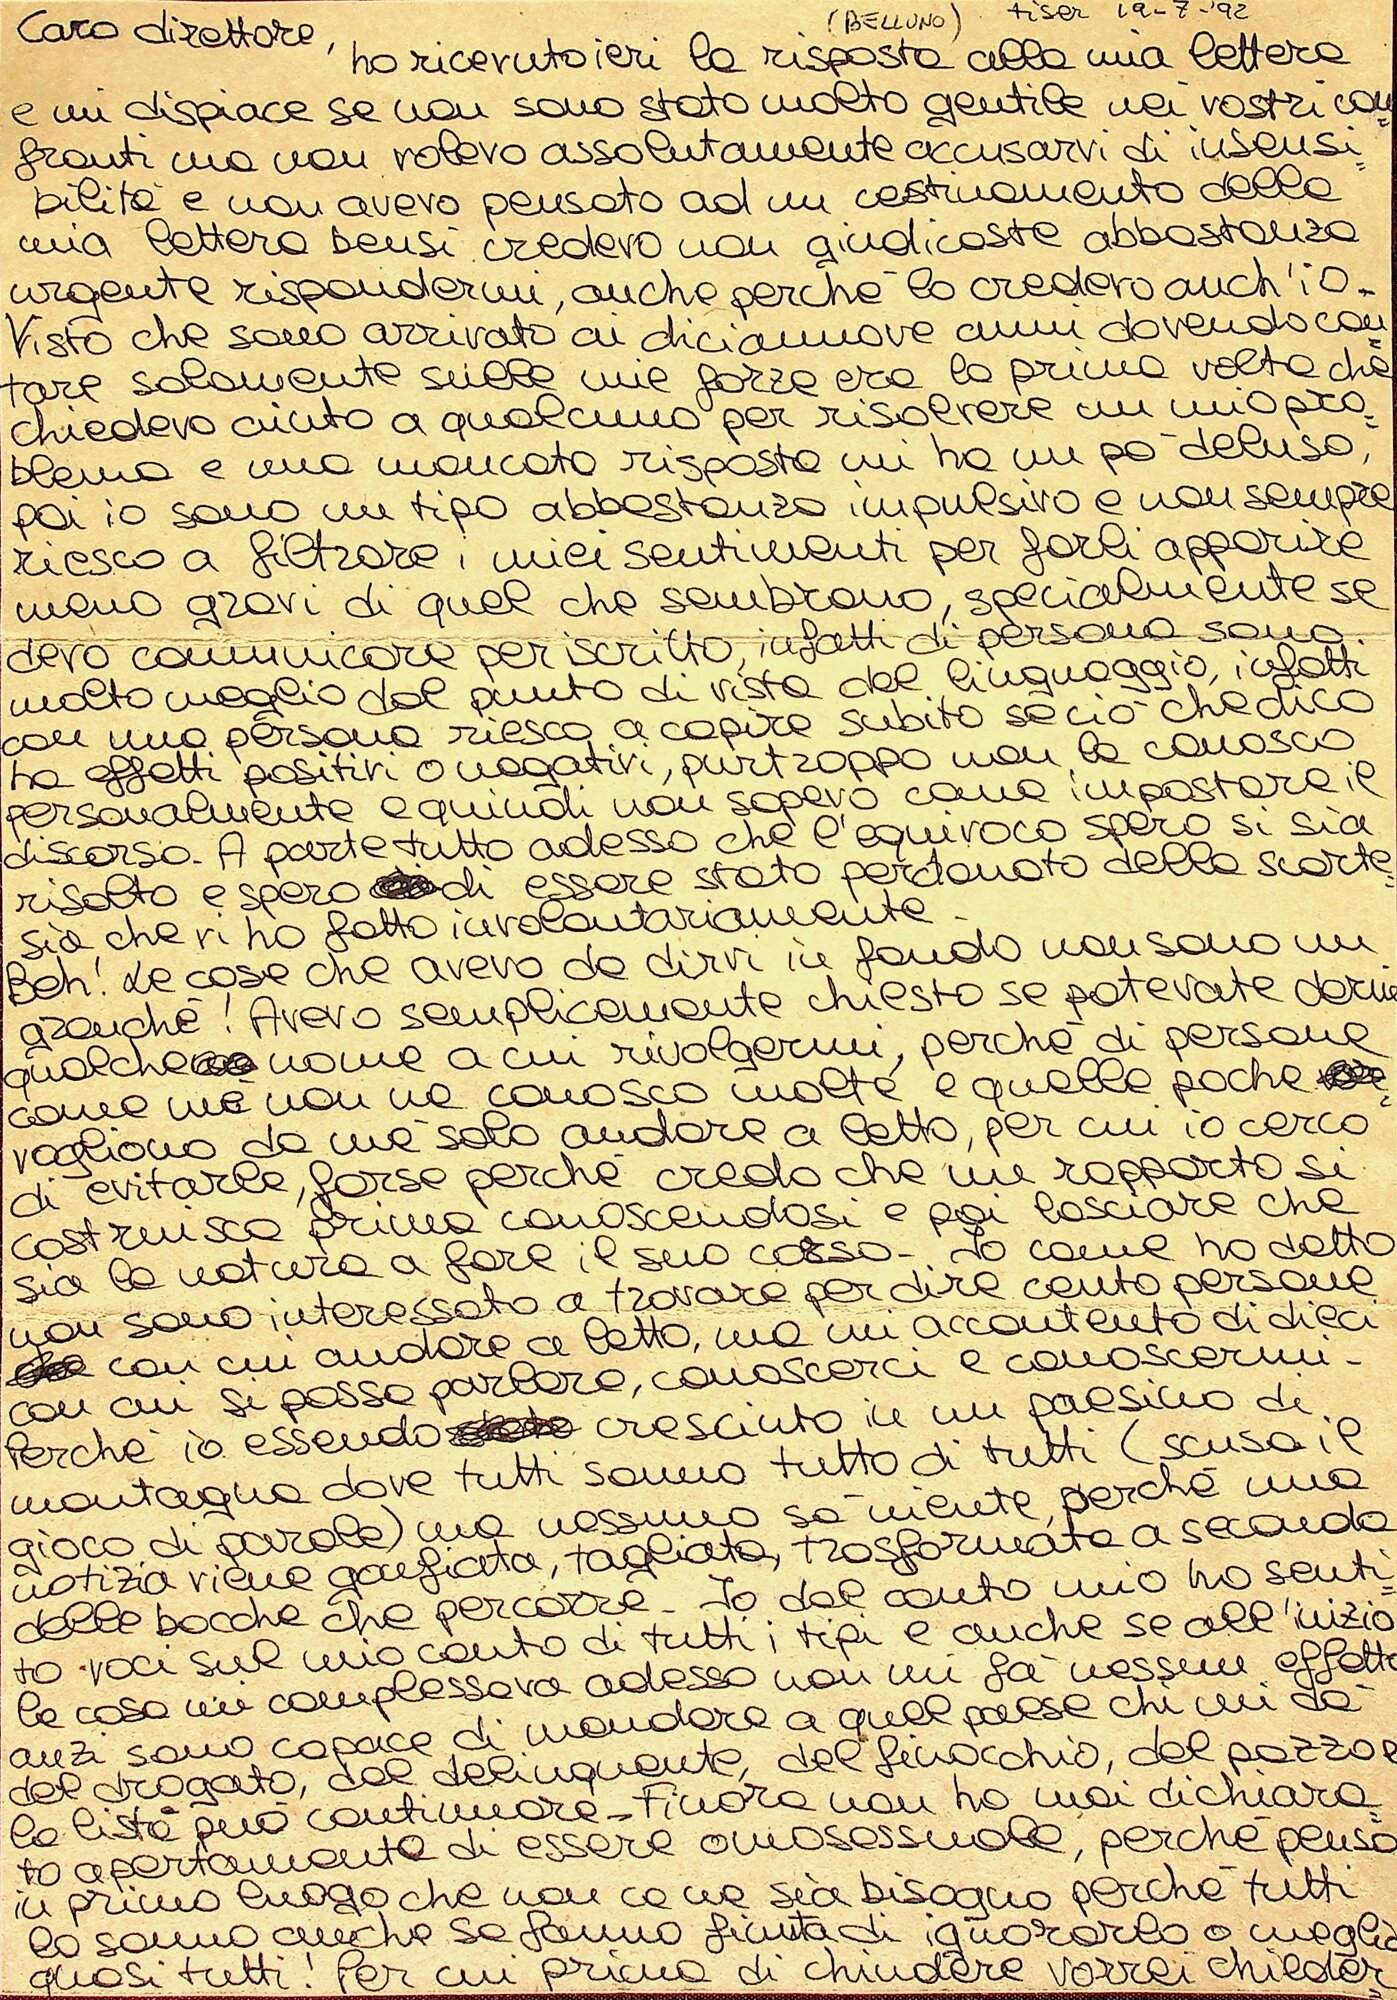 (BELLUNO) tiser 19-7-'92
Caro direttore,
ho ricevuto ieri la risposta alla mia lettera
e mi dispiace se non sono stato molto gentile nei vostri con=
fronti ma non volevo assolutamente accusarvi di insensi=
bilità e non avevo pensato ad un cestinamento della
mia lettera bensì credevo non giudicaste abbastanza
urgente rispondermi, anche perché lo credevo anch'io-
Visto che sono arrivato ai diciannove anni dovendo con=
tare solamente sulle mie forze era la prima volta che
chiedevo aiuto a qualcuno per risolvere un mio pro=
blema e una mancata risposta mi ha un pò deluso,
poi io sono un tipo abbastanza impulsivo e non sempre
riesco a filtrare i miei sentimenti per farli apparire
meno gravi di quel che sembrano, specialmente se
devo comunicare per iscritto, infatti di persona sono
molto meglio dal punto di vista del linguaggio, infatti
con una persona riesco a capire subito se ciò che dico
ha effetti positivi o negativi, purtroppo non la conosco
personalmente e quindi non sapevo come impostare il
discorso- A parte tutto adesso che l'equivoco spero si sia
risolto e spero di essere stato perdonato della scorte=
sia che vi ho fatto involontariamente-
Beh! Le cose che avevo da dirvi in fondo non sono un
granché! Avevo semplicemente chiesto se potevate darmi
qualche nome a cui rivolgermi, perché di persone
come me non ne conosco molte e quelle poche
vogliono da me solo andare a letto, per cui io cerco
di evitarle, forse perché credo che un rapporto si
costruisca prima conoscendosi e poi lasciare che
sia la natura a fare il suo corso- Io come ho detto
non sono interessato a trovare per dire cento persone
con cui andare a letto, ma mi accontento di dieci
con cui si possa parlare, conoscerci e conoscermi-
Perché io essendo cresciuto in un paesino di
montagna dove tutti sanno tutto di tutti (scusa il
gioco di parole) ma nessuno sa niente, perché una
notizia viene gonfiata, tagliata, trasformata a seconda
delle bocche che percorre- Io dal canto mio ho senti=
to voci sul mio conto di tutti i tipi e anche se all'inizio
la cosa mi complessava adesso non mi fà nessun effetto
anzi sono capace di mandare a quel paese chi mi dà
del drogato, del delinquente, del finocchio, del pazzo e
la lista può continuare- Finora non ho mai dichiara=
to apertamente di essere omosessuale, perché penso
in primo luogo che non ce ne sia bisogno perché tutti
lo sanno anche se fanno finta di ignorarlo o meglio
quasi tutti! Per cui prima di chiudere vorrei chieder